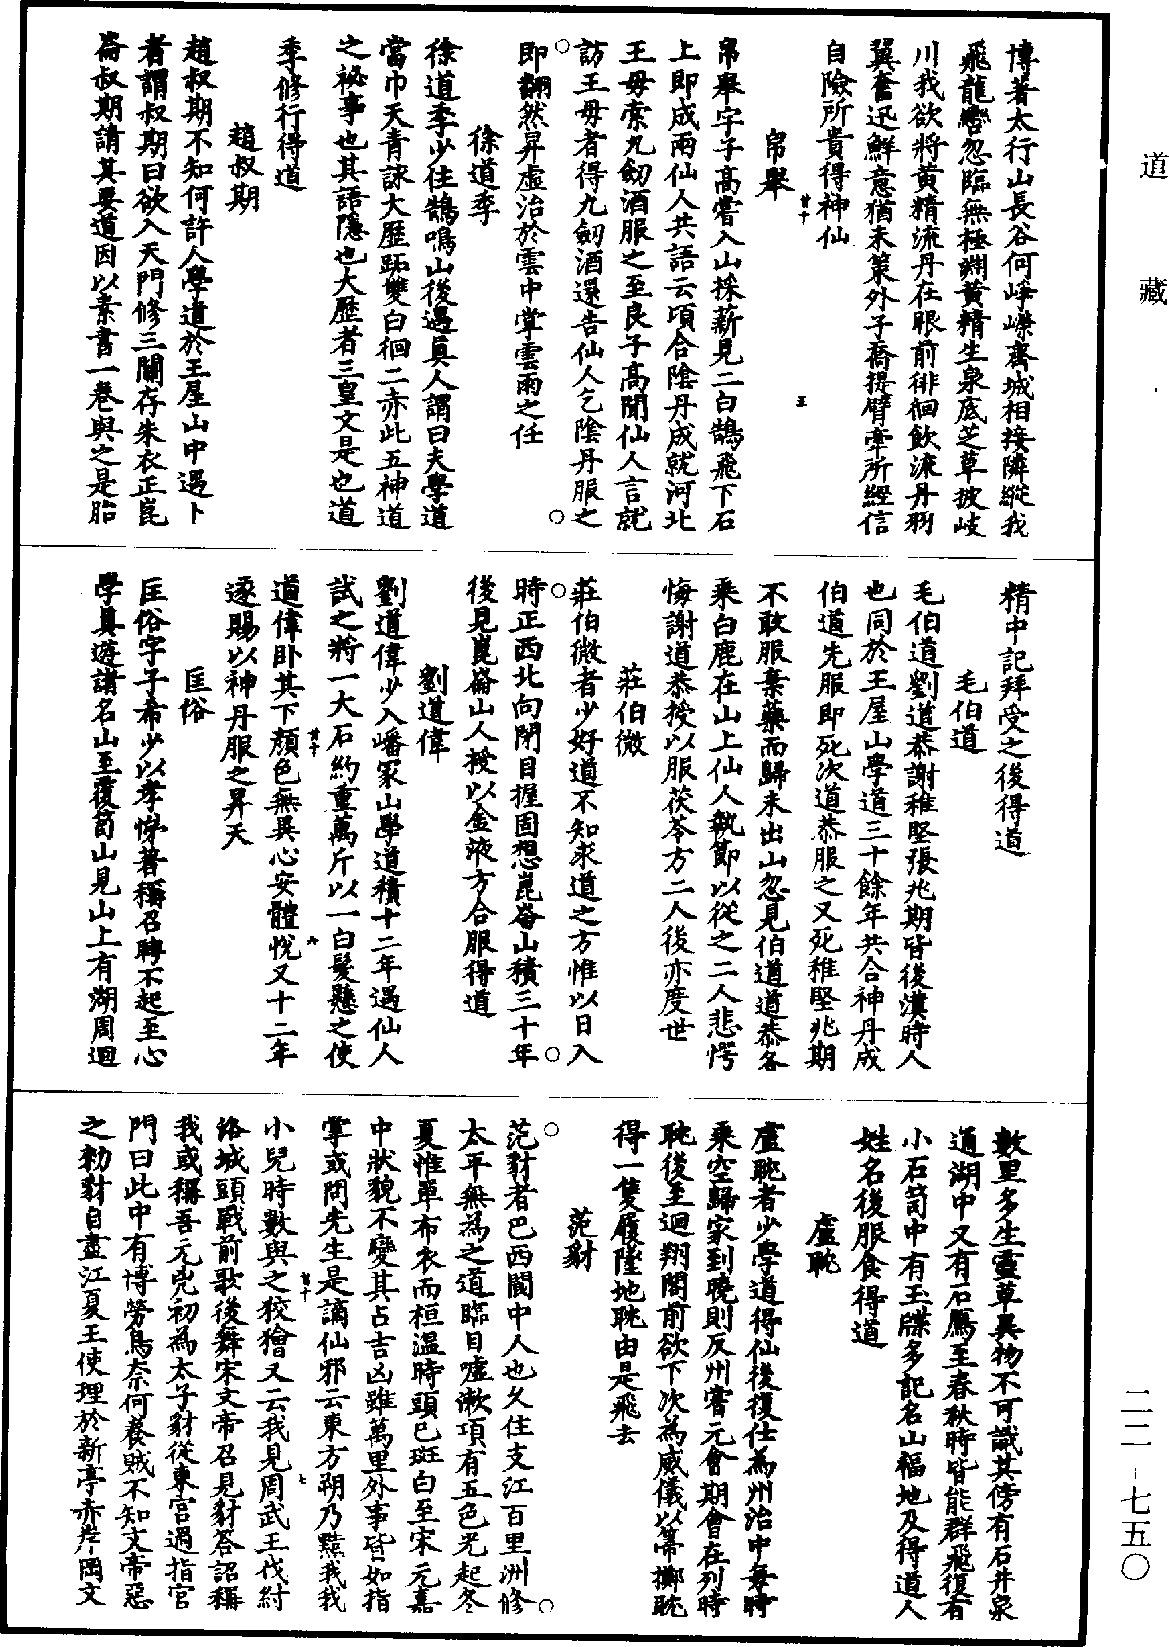 道藏
二二-七五〇
博著太行山長谷何崢嶸齊城相接隣縱我
飛龍轡忽臨無極淵黃精生泉底芝草披岐
川我欲將黃精流丹在眼前徘徊飲流丹羽
翼奮迅鮮意猶未策外子喬提臂牽所經信
自險所貴得神仙
廿十
王
帛舉
帛舉字子高嘗入山採薪見二白鵠飛下石
上即成兩仙人共語云頃合陰丹成就河北
王母索九劒酒服之至良子高聞仙人言就
訪王母者得九劒酒還告仙人乞陰丹服之
即翻然昇虛治於雲中掌雲雨之任
徐道季
徐道季少住鵠鳴山後遇真人謂曰夫學道
當巾天青詠大歷跖雙白徊二赤此五神道
之祕事也其語隱也大歷者三皇文是也道
季修行得道
趙叔期
趙叔期不知何許人學道於王屋山中遇卜
者謂叔期曰欲入天門修三關存朱衣正崑
崙叔期請其要道因以素書一卷與之是胎
精中記拜受之後得道
毛伯道
毛伯道劉道恭謝稚堅張兆期皆後漢時人
也同於王屋山學道三十餘年共合神丹成
伯道先服即死次道恭服之又死稚堅兆期
不敢服棄藥而歸未出山忽見伯道道恭各
乘白鹿在山上仙人執節以從之二人悲愕
悔謝道恭授以服茯苓方二人後亦度世
莊伯微
莊伯微者少好道不知求道之方惟以日入
時正西北向閉目握固想崑崙山積三十年
後見崑崙山人授以金液方合服得道
劉道偉
劉道偉少入嶓冢山學道積十二年遇仙人
試之將一大石約重萬斤以一白髮懸之使
道偉卧其下顏色無異心安體悅又十二年
廿十
六
遂賜以神丹服之昇天
匡俗
匡俗字子希少以孝悌著稱召聘不起至心
學真遊諸名山至覆笥山見山上有湖周迴
數里多生靈草異物不可識其傍有石井泉
通湖中又有石鴈至春秋時皆能群飛復有
小石笥中有玉牒多記名山福地及得道人
姓名後服食得道
盧耽
盧耽者少學道得仙後復仕為州治中每時
乘空歸家到曉則反州嘗元會期會在列時
耽後至迴翔閣前欲下次為威儀以箒擲耽
得一隻履墜地耽由是飛去
范豺
范豺者巴西閬中人也久住支江百里洲修
太平無為之道臨目噓漱項有五色光起冬
夏惟單布衣而桓溫時頭已斑白至宋元嘉
中狀貌不變其占吉凶雖萬里外事皆如指
掌或問先生是謫仙邪云東方朔乃黠我我
廿十
七
小兒時數與之狡獪又云我見周武王伐紂
洛城頭戰前歌後舞宋文帝召見豺答詔稱
我或稱吾元兇初為太子豺從東宮過指宮
門曰此中有博勞鳥奈何養賊不知文帝惡
之勑豺自盡江夏王使理於新亭赤岸岡文